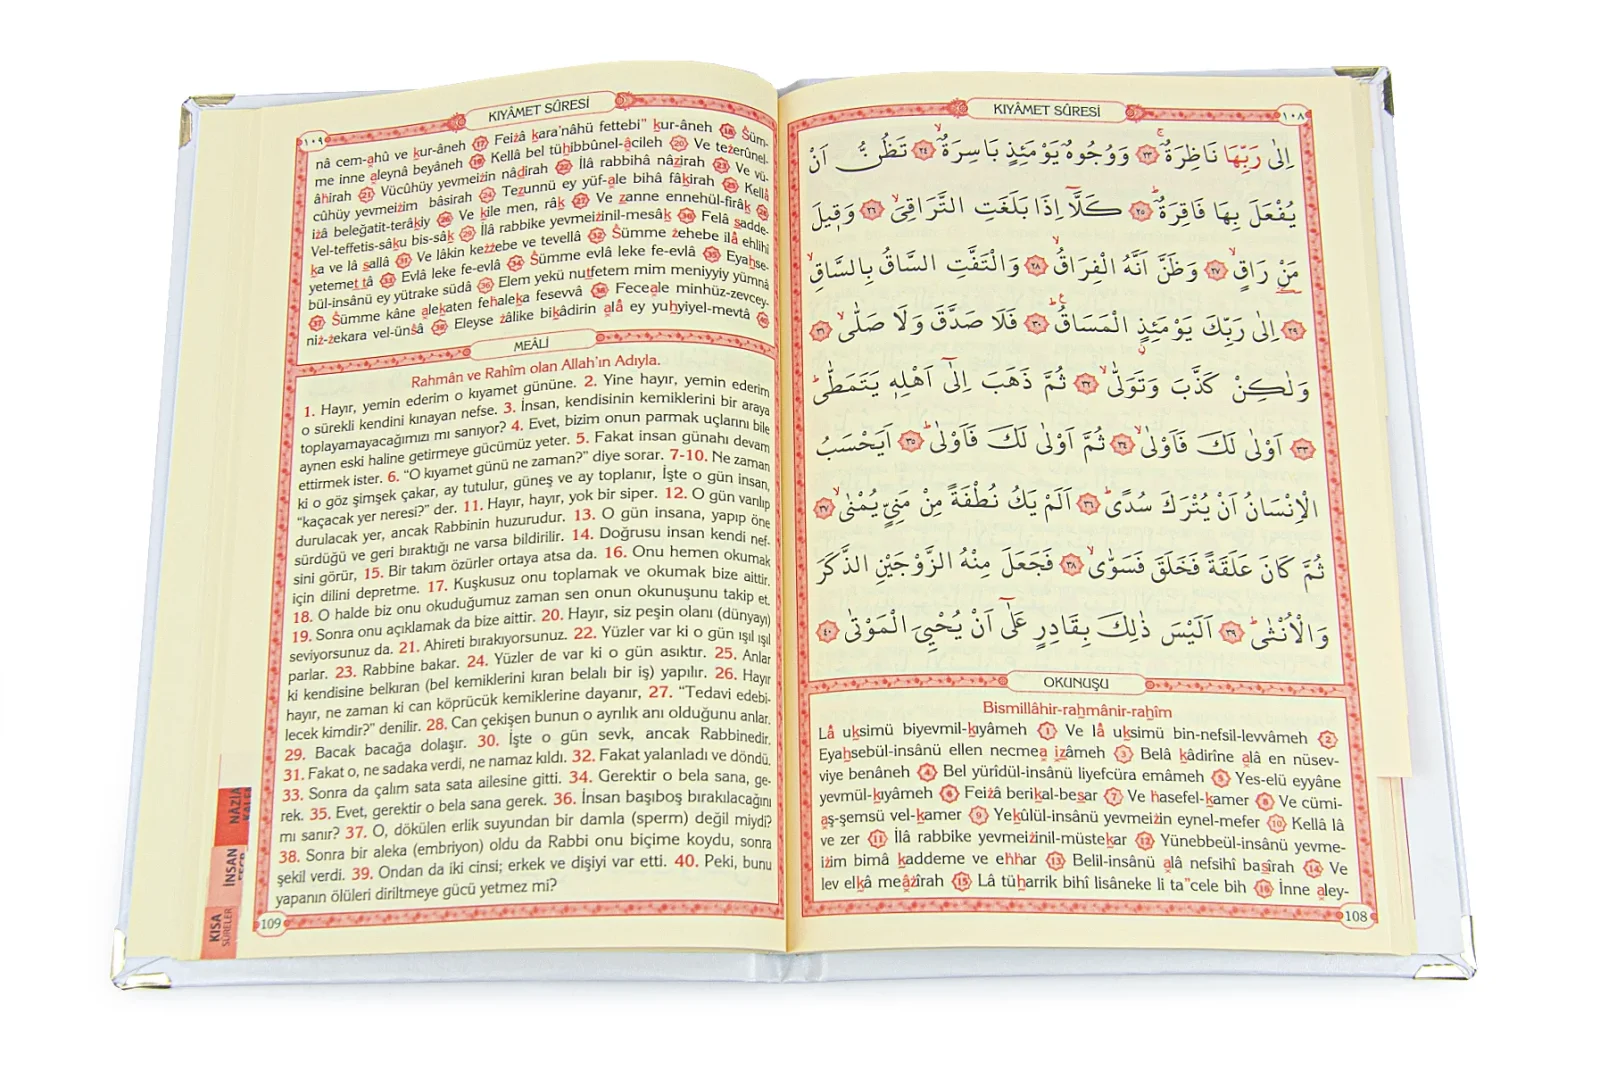 KIYÂMET SÛRESİ
١٠٨
اِلٰى رَبِّهَا نَاظِرَةٌۚ ٢٣ وَوُجُوهٌ يَوْمَئِذٍ بَاسِرَةٌۙ ٢٤ تَظُنُّ اَنْ
يُفْعَلَ بِهَا فَاقِرَةٌۜ ٢٥ كَلَّٓا اِذَا بَلَغَتِ التَّرَاقِيَۙ ٢٦ وَق۪يلَ
مَنْ رَاقٍۙ ٢٧ وَظَنَّ اَنَّهُ الْفِرَاقُۙ ٢٨ وَالْتَفَّتِ السَّاقُ بِالسَّاقِۙ
٢٩ اِلٰى رَبِّكَ يَوْمَئِذٍ الْمَسَاقُۜ ٣٠ فَلَا صَدَّقَ وَلَا صَلّٰىۙ ٣١
وَلٰكِنْ كَذَّبَ وَتَوَلّٰىۙ ٣٢ ثُمَّ ذَهَبَ اِلٰٓى اَهْلِه۪ يَتَمَطّٰىۜ
٣٣ اَوْلٰى لَكَ فَاَوْلٰىۙ ٣٤ ثُمَّ اَوْلٰى لَكَ فَاَوْلٰىۜ ٣٥ اَيَحْسَبُ
الْاِنْسَانُ اَنْ يُتْرَكَ سُدًىۜ ٣٦ اَلَمْ يَكُ نُطْفَةً مِنْ مَنِيٍّ يُمْنٰىۙ ٣٧
ثُمَّ كَانَ عَلَقَةً فَخَلَقَ فَسَوّٰىۙ ٣٨ فَجَعَلَ مِنْهُ الزَّوْجَيْنِ الذَّكَرَ
وَالْاُنْثٰىۜ ٣٩ اَلَيْسَ ذٰلِكَ بِقَادِرٍ عَلٰٓى اَنْ يُحْيِيَ الْمَوْتٰى ٤٠
OKUNUŞU
Bismillâhir-rahmânir-rahîm
Lâ uksimü biyevmil-kıyâmeh 1 Ve lâ uksimü bin-nefsil-levvâmeh 2
Eyahsebül-insânü ellen necmea izâmeh 3 Belâ kâdirîne alâ en nüsev-
viye benâneh 4 Bel yürîdül-insânü liyefcüra emâmeh 5 Yes-elü eyyâne
yevmül-kıyâmeh 6 Feiżâ berikal-besar 7 Ve hasefel-kamer 8 Ve cümi-
aş-şemsü vel-kamer 9 Yekûlül-insânü yevmeiżin eynel-mefer 10 Kellâ lâ
ve zer 11 İlâ rabbike yevmeiżinil-müstekar 12 Yünebbeül-insânü yevme-
iżim bimâ kaddeme ve ehhar 13 Belil-insânü alâ nefsihî basîrah 14 Ve
lev elkâ meâżîrah 15 Lâ tüharrik bihî lisâneke li ta"cele bih 16 İnne aley-
108
KIYÂMET SÛRESİ
١٠٩
nâ cem-ahû ve kur-âneh 17 Feiżâ kara'nâhü fettebi" kur-âneh 18 Śüm-
me inne aleynâ beyâneh 19 Kellâ bel tühıbbûnel-âcileh 20 Ve teżerûnel-
âhirah 21 Vücûhüy yevmeiżin nâdırah 22 İlâ rabbihâ nâzirah 23 Ve vü-
cûhüy yevmeiżim bâsirah 24 Tezunnü ey yüf-ale bihâ fâkirah 25 Kellâ
iżâ beleğatit-terâkıy 26 Ve kile men, râk 27 Ve zanne ennehül-firâk 28
Vel-teffetis-sâku bis-sâk 29 İlâ rabbike yevmeiżinil-mesâk 30 Felâ sadde-
ka ve lâ sallâ 31 Ve lâkin keżżebe ve tevellâ 32 Śümme żehebe ilâ ehlihî
yetemettâ 33 Evlâ leke fe-evlâ 34 Śümme evlâ leke fe-evlâ 35 Eyahse-
bül-insânü ey yütrake südâ 36 Elem yekü nutfetem mim meniyyiy yümnâ
37 Śümme kâne alekaten fehaleka fesevvâ 38 Feceale minhüz-zevcey-
niż-żekara vel-ünśâ 39 Eleyse żâlike bikâdirin alâ ey yuhyiyel-mevtâ 40
MEÂLİ
Rahmân ve Rahîm olan Allah'ın Adıyla.
1. Hayır, yemin ederim o kıyamet gününe. 2. Yine hayır, yemin ederim
o sürekli kendini kınayan nefse. 3. İnsan, kendisinin kemiklerini bir araya
toplayamayacağımızı mı sanıyor? 4. Evet, bizim onun parmak uçlarını bile
aynen eski haline getirmeye gücümüz yeter. 5. Fakat insan günahı devam
ettirmek ister. 6. "O kıyamet günü ne zaman?" diye sorar. 7-10. Ne zaman
ki o göz şimşek çakar, ay tutulur, güneş ve ay toplanır, İşte o gün insan,
"kaçacak yer neresi?" der. 11. Hayır, hayır, yok bir siper. 12. O gün varılıp
durulacak yer, ancak Rabbinin huzurudur. 13. O gün insana, yapıp öne
sürdüğü ve geri bıraktığı ne varsa bildirilir. 14. Doğrusu insan kendi nef-
sini görür, 15. Bir takım özürler ortaya atsa da. 16. Onu hemen okumak
için dilini depretme. 17. Kuşkusuz onu toplamak ve okumak bize aittir.
18. O halde biz onu okuduğumuz zaman sen onun okunuşunu takip et.
19. Sonra onu açıklamak da bize aittir. 20. Hayır, siz peşin olanı (dünyayı)
seviyorsunuz da. 21. Ahireti bırakıyorsunuz. 22. Yüzler var ki o gün ışıl ışıl
parlar. 23. Rabbine bakar. 24. Yüzler de var ki o gün asıktır. 25. Anlar
ki kendisine belkıran (bel kemiklerini kıran belalı bir iş) yapılır. 26. Hayır
hayır, ne zaman ki can köprücük kemiklerine dayanır, 27. "Tedavi edebi-
lecek kimdir?" denilir. 28. Can çekişen bunun o ayrılık anı olduğunu anlar.
29. Bacak bacağa dolaşır. 30. İşte o gün sevk, ancak Rabbinedir.
31. Fakat o, ne sadaka verdi, ne namaz kıldı. 32. Fakat yalanladı ve döndü.
33. Sonra da çalım sata sata ailesine gitti. 34. Gerektir o bela sana, ge-
rek. 35. Evet, gerektir o bela sana gerek. 36. İnsan başıboş bırakılacağını
mı sanır? 37. O, dökülen erlik suyundan bir damla (sperm) değil miydi?
38. Sonra bir aleka (embriyon) oldu da Rabbi onu biçime koydu, sonra
şekil verdi. 39. Ondan da iki cinsi; erkek ve dişiyi var etti. 40. Peki, bunu
yapanın ölüleri diriltmeye gücü yetmez mi?
109
NÂZİA
İNSAN
KISA
SÛRELER